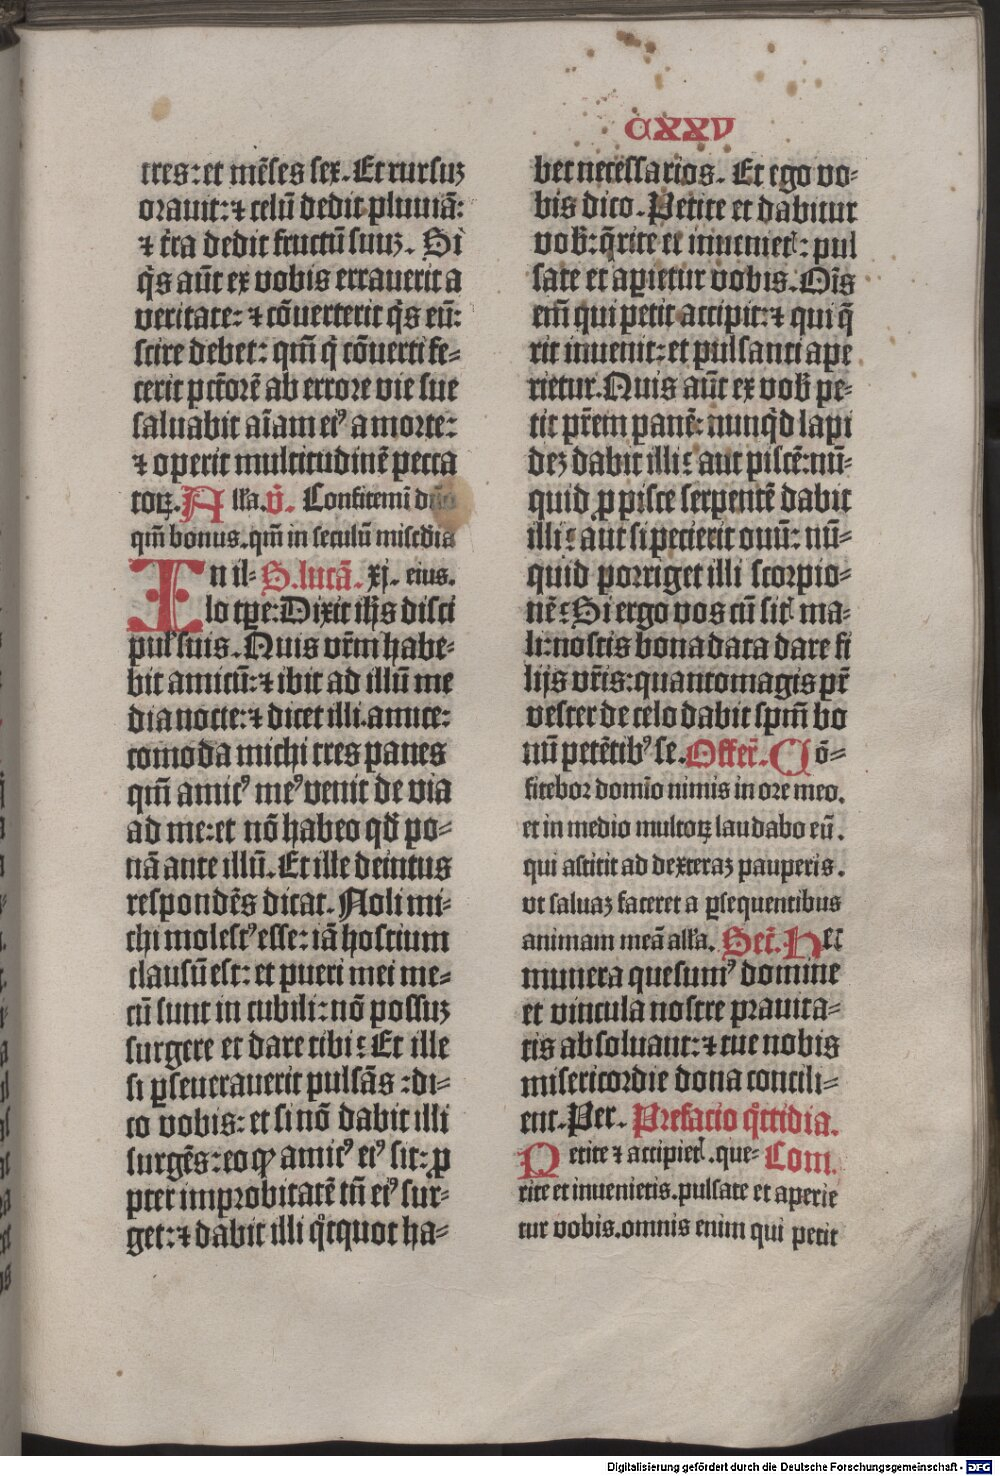 CXXV
tres: et mēses sex. Et rursuꝫ
orauit: ⁊ celū dedit pluuiā:
⁊ t̄ra dedit fructū suuꝫ. Si
q̇s aūt ex vobis errauerit a
veritate: ⁊ cōuerterit q̇s eū:
scire debet: qm̄ q̇ cōuerti fe⸗
cerit pctōrē ab errore vie sue
saluabit aīam eiꝰ a morte:
⁊ operit multitudinē pecca
toꝝ. Alla. v̄. Confitemī dn̄o
qm̄ bonus. qm̄ in seculū miscdia
In il⸗ S. lucā. xj. eius.
lo tꝑe: Dixit ih̄s disci
pul' suis. Quis vr̄m habe⸗
bit amicū: ⁊ ibit ad illū me
dia nocte: ⁊ dicet illi. amice:
comoda michi tres panes
qm̄ amicꝰ meꝰ venit de via
ad me: et nō habeo qd̄ po⸗
nā ante illū. Et ille deintus
respondēs dicat. Noli mi⸗
chi molestꝰ esse: iā hostium
clausū est: et pueri mei me⸗
cū sunt in cubili: nō possuꝫ
surgere et dare tibi: Et ille
si ꝑseuerauerit pulsās: di⸗
co vobis: et si nō dabit illi
surgēs: eo ꝙ amicꝰ eiꝰ sit: ꝓ
pter improbitatē tn̄ eiꝰ sur⸗
get: ⁊ dabit illi qͦtquot ha⸗
bet necessarios. Et ego vo⸗
bis dico. Petite et dabitur
vob̄: q̄rite et inuenietꝭ: pul
sate et apietur vobis. Om̄s
em̄ qui petit accipit: ⁊ qui q̄
rit inuenit: et pulsanti ape
rietur. Quis aūt ex vob̄ pe⸗
tit pr̄em panē: nunq̇d lapi
deꝫ dabit illi: aut piscē: nū⸗
quid ꝓ pisce serpentē dabit
illi: aut si pecierit ouū: nū⸗
quid porriget illi scorpio⸗
nē: Si ergo vos cū sitꝭ ma⸗
li: nostis bona data dare fi
lijs vr̄is: quantomagis pr̄
vester de celo dabit spm̄ bo
nū petētibꝰ se. Offer̄. Cō⸗
fitebor domīo nimis in ore meo.
et in medio multoꝝ laudabo eū.
qui astitit ad dexteraꝫ pauperis.
vt saluaꝫ faceret a ꝑsequentibus
animam meā alla. Secr̄. Hec
munera quesumꝰ domine
et vincula nostre prauita⸗
tis absoluant: ⁊ tue nobis
misericordie dona concili⸗
ent. Per. Prefacio qͦttidia.
Petite ⁊ accipietꝭ. que⸗ Com.
rite et inuenietis. pulsate et aperie
tur vobis. omnis enim qui petit
Digitalisierung gefördert durch die Deutsche Forschungsgemeinschaft - DFG